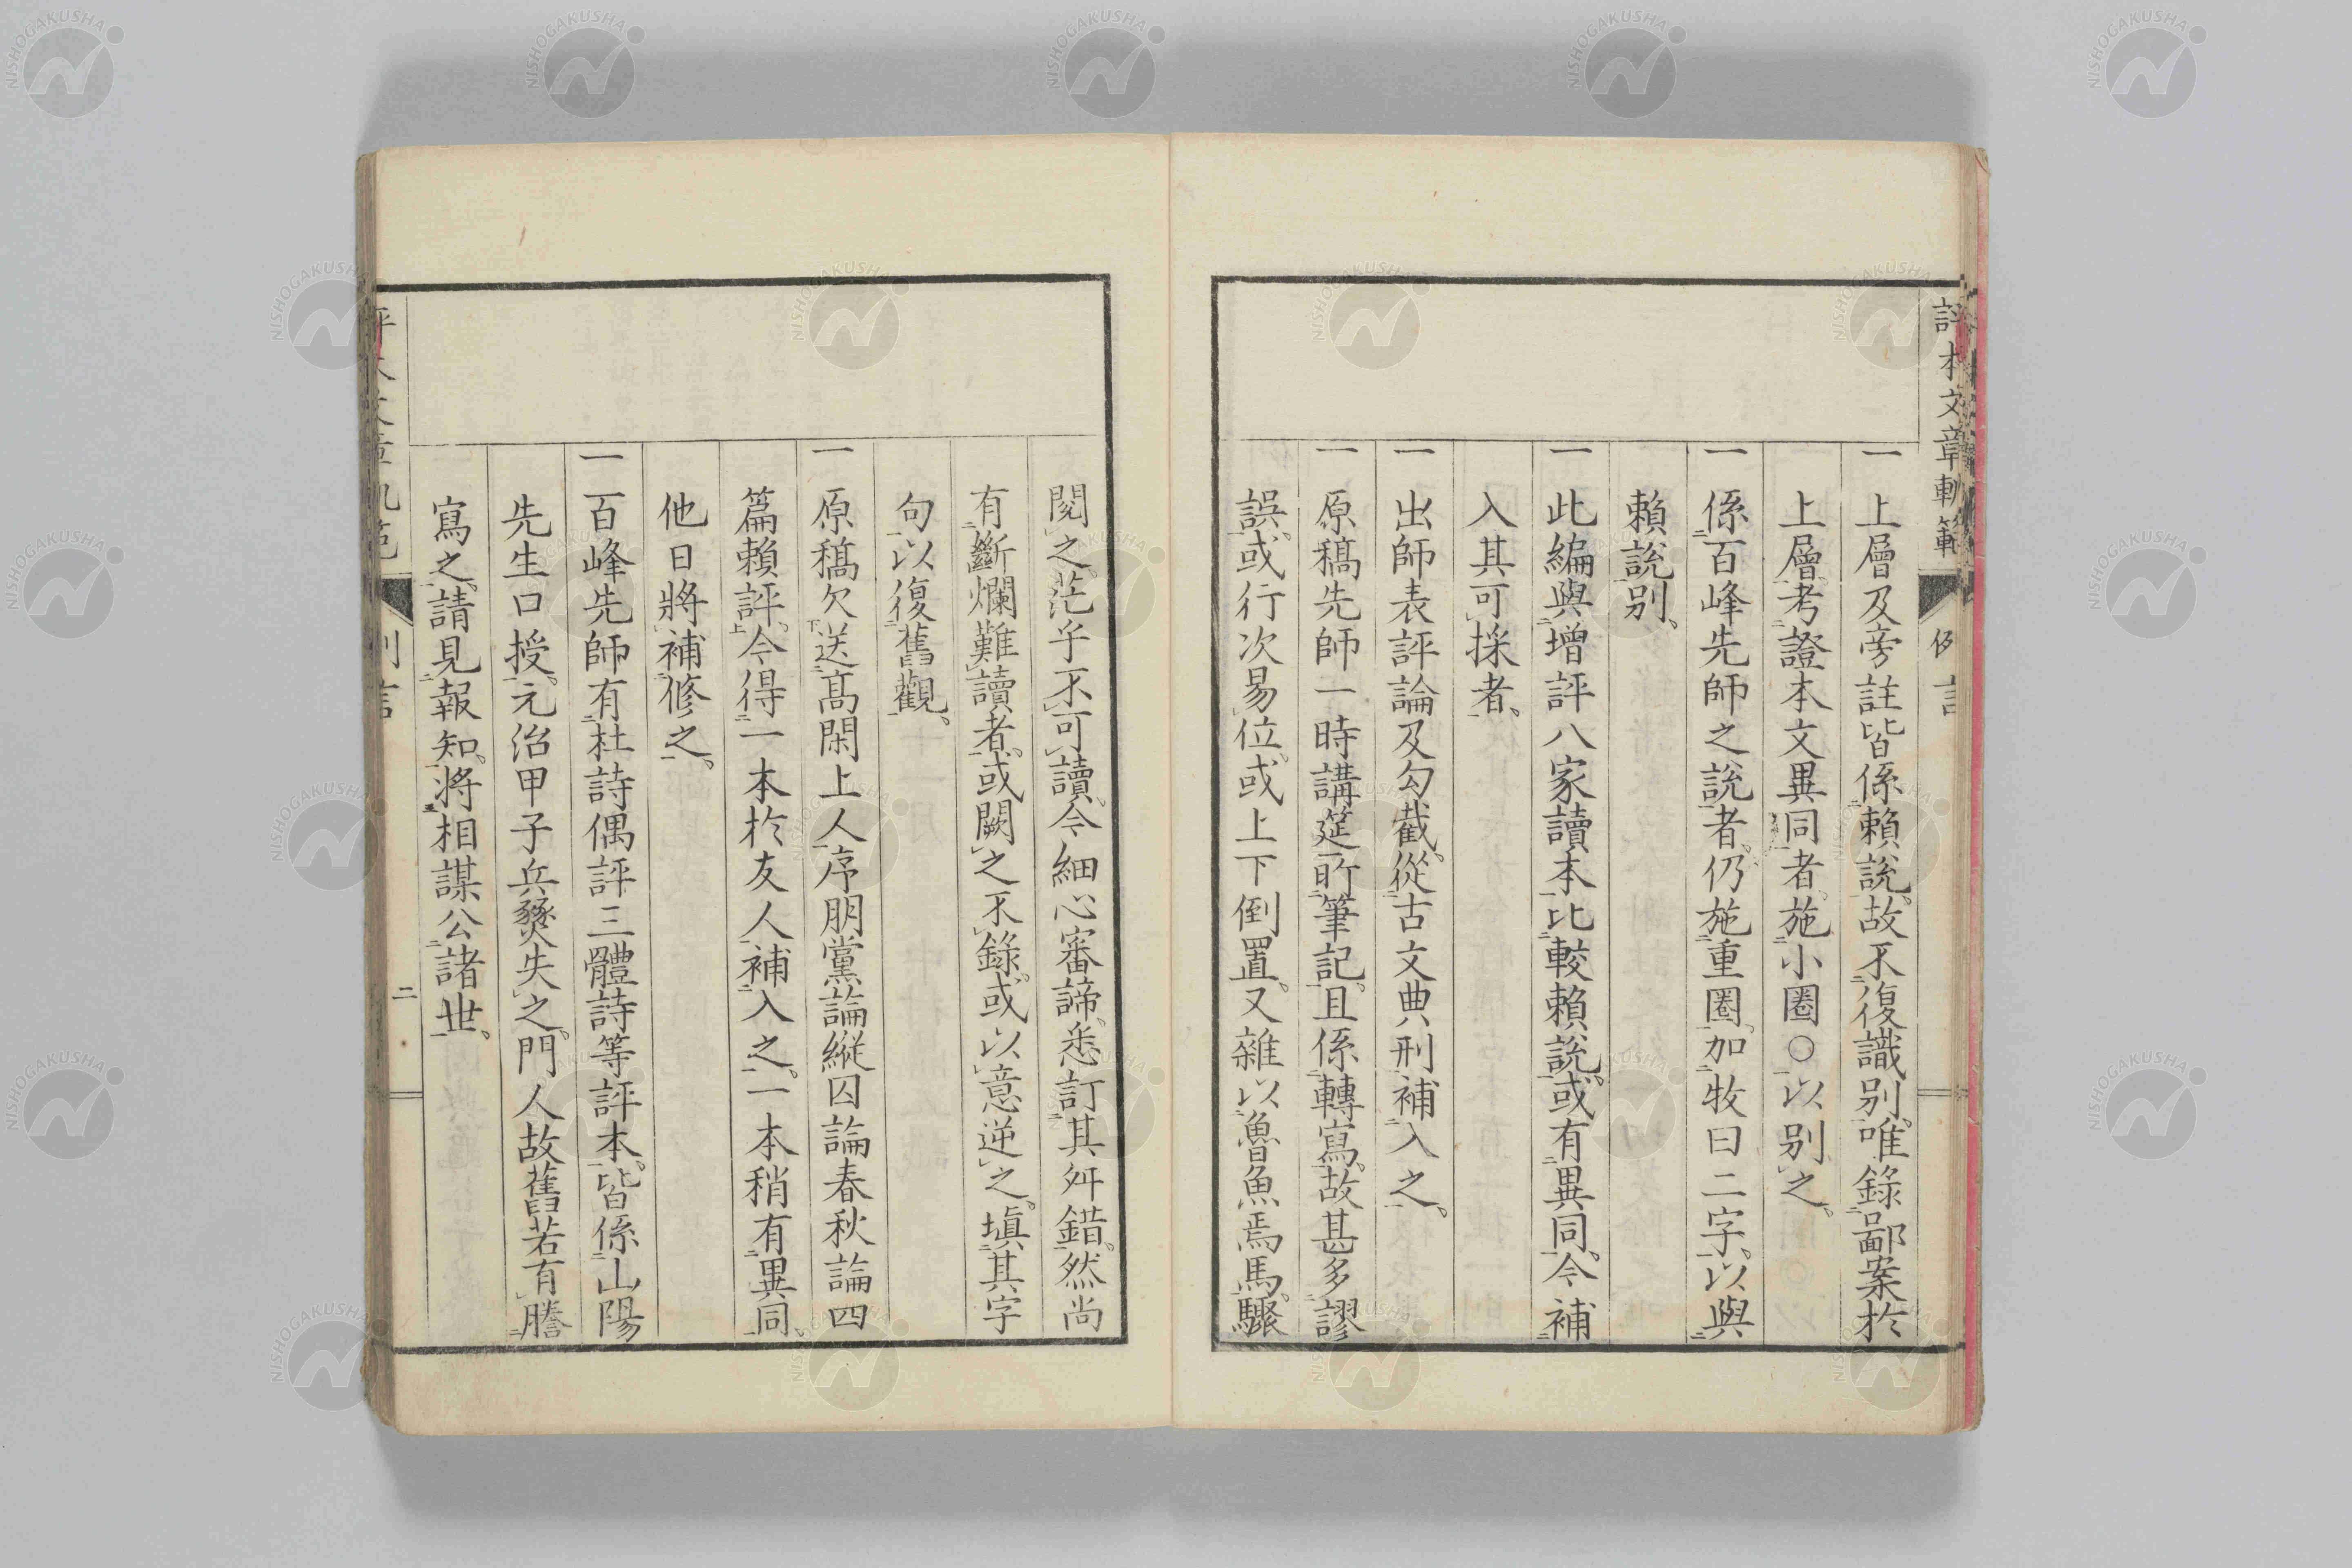 評本文章軌範
例言
一上層及旁註皆係賴說。故不復識別。唯錄鄙案於
上層。考證本文異同者。施小圈○以別之。
一係百峰先師之說者。仍施重圈。加牧曰二字。以與
賴說別。
一此編與增評八家讀本比較賴說。或有異同。今補
入其可採者。
一出師表評論及勾截。從古文典刑補入之。
一原稿先師一時講筵所筆記。且係轉寫。故甚多謬
誤。或行次易位。或上下倒置。又雜以魯魚焉馬。驟
閱之。茫乎不可讀。今細心審諦。悉訂其舛錯。然尚
有斷爛難讀者。或闕之不錄。或以意逆之。塡其字
句以復舊觀。
一原稿欠送高閑上人序朋黨論縱囚論春秋論四
篇賴評。今得一本於友人補入之。一本稍有異同。
他日將補修之。
一百峰先師有杜詩偶評三體詩等評本。皆係山陽
先生口授。元治甲子兵燹失之。門人故舊若有謄
寫之。請見報知。將相謀公諸世。
例言
二
NISHOGAKUSHA